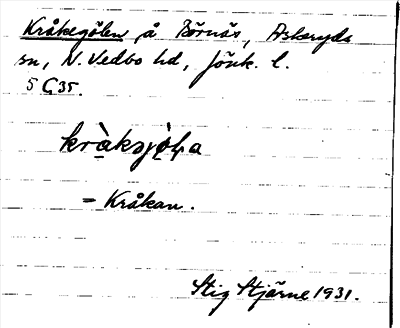 Kråkegölen, å Börnäs, Askeryds
sn, N. Vedbo hd, Jönk. l.
5 G 35.
kràksjǫ̀ɫa
= Kråkan.
Stig Stjärne 1931.